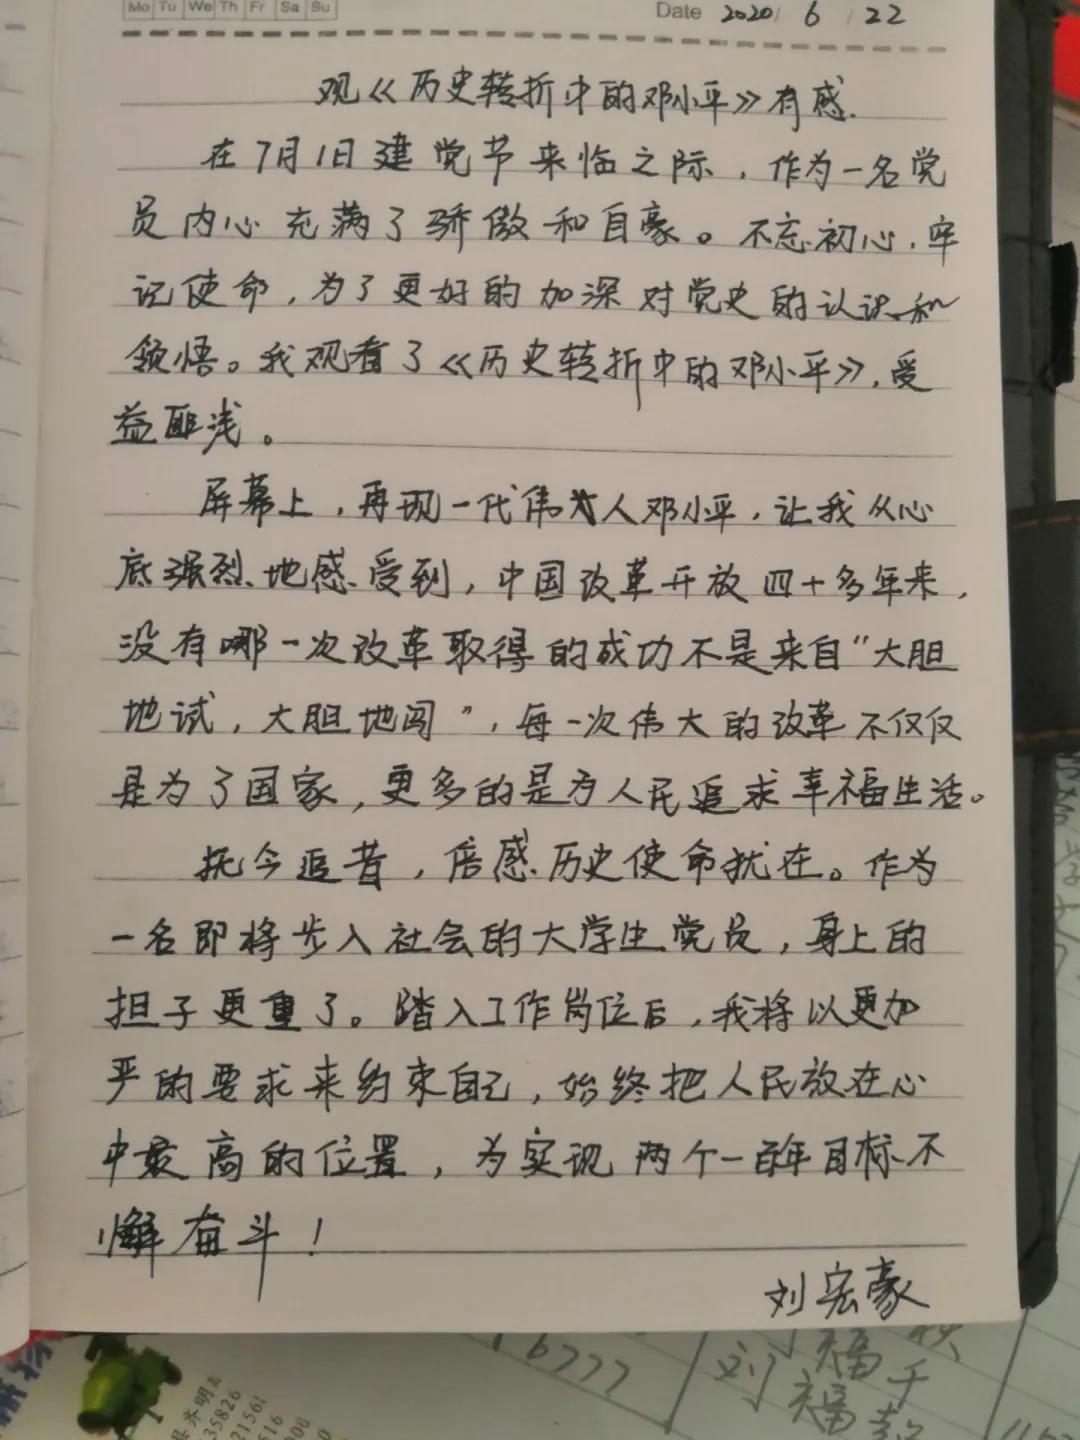 Mo Tu We Th Fr Sa Su
Date 2020/ 6 / 22
观《历史转折中的邓小平》有感.
在7月1日建党节来临之际，作为一名党
员内心充满了骄傲和自豪。不忘初心，牢
记使命，为了更好的加深对党史的认识和
领悟。我观看了《历史转折中的邓小平》，受
益匪浅。
屏幕上，再现一代伟人邓小平，让我从心
底强烈地感受到，中国改革开放四十多年来，
没有哪一次改革取得的成功不是来自“大胆
地试，大胆地闯”，每一次伟大的改革不仅仅
是为了国家，更多的是为人民追求幸福生活。
抚今追昔，倍感历史使命犹在。作为
一名即将步入社会的大学生党员，身上的
担子更重了。踏入工作岗位后，我将以更加
严的要求来约束自己，始终把人民放在心
中最高的位置，为实现两个一百年目标不
懈奋斗！
刘宏豪
16777
刘 福
千
福
县齐明
35826
2156
516
000
00